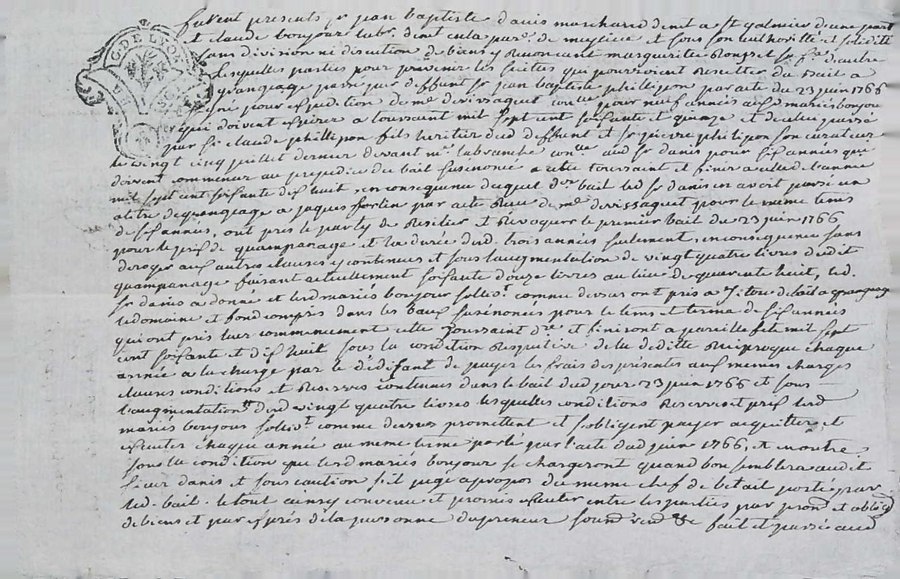 furent presents sr jean baptiste danis marchand dem.t a st galmier d'une part
et claude bonjour lab.r dem.t en la par.se de et sous son authorité et solidité
sans division ni discution de biens y renoncant marguerite sa f.e d'autre
lesquelles parties pour prevenir les suittes qui pourroient resulter du bail a
grangeage passé par deffunt sr jean baptiste philipon par acte du 23 juin 1766
pour expedition de me devissaguet pour neuf années aux d mariés bonjour
qui doivent expirer a toussaint mil sept cent soisante et quinze et de celui passé
par sr claude philipon fils heritier dud deffunt et sr philipon son curateur
le vingt cinq juillet dernier devant me labranche aud sr danis pour six années qui
doivent commencer au prejudice du bail susenoncé a cette toussaint et finir a celle de l'année
mil sept cent soisante dix huit, en consequence duquel d.er bail led sr danis en avoit passé un
a titre de grangeage a jaques fortin par acte de me devissaguet pour le meme tems
de six années, ont pris le party de resilier et revoquer le premier bail du 23 juin 1766
pour le prix de et la durée desd. trois années seulement, en consequence sans
deroger aux autres clauses y contenues et sous l'augmentation de vingt quatre livres dudit
faisant actuellement soisante douze livres au lieu de quarente huit, led.
sr danis a donné et lesd mariés bonjour comme dessus ont pris a titre de bail a grangeage
le domaine et fond compris dans les baux susenoncés pour le tems et terme de six années
qui ont pris leur commencement cette toussaint d.re et finiront a pareille fete mil sept
cent soisante et dix huit sous la condition respective de la deditte reciproque chaque
année a la charge par le dédisant de payer les frais des présentes aux memes charges
clauses conditions et reserves contenues dans le bail dud jour 23 juin 1766 et sous
l'augmentation desd vingt quatre livres lesquelles conditions reserves et prix lesd
mariés bonjour comme dessus promettent et s'obligent payer acquitter et
executer chaque année au meme terme porté par l'acte dud juin 1766, et en outre
sous la condition que lesd mariés bonjour se chargeront quand bon semblera aud
sieur danis et sous caution s'il juge a propos du meme chef de betail porté par
led. bail. le tout ainsy convenu et promis executer entre les parties par prom.e et oblig.on
de biens et par exprés de la personne du preneur fait et passé aud